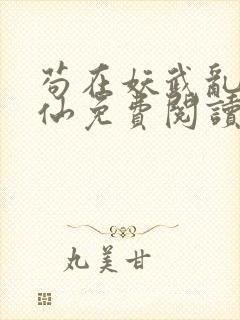 苟在妖武亂
仙免費閱讀
丸美甘